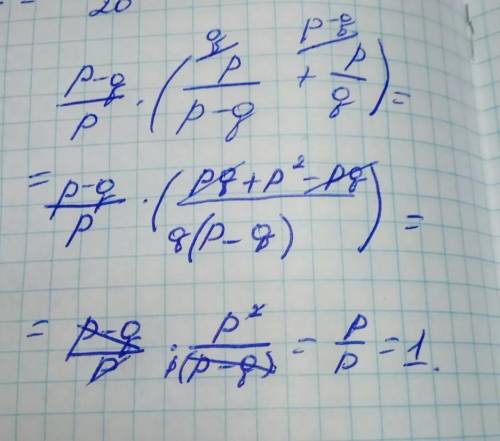 20
(p-q)/p · ( ^{q/} p/(p-q) + ^{p-q/} p/q ) =
= (p-q)/p · ( (pq + p² - pq)/(q(p-q)) ) =
= (p-q)/p · p²/(p(p-q)) = p/p = 1.